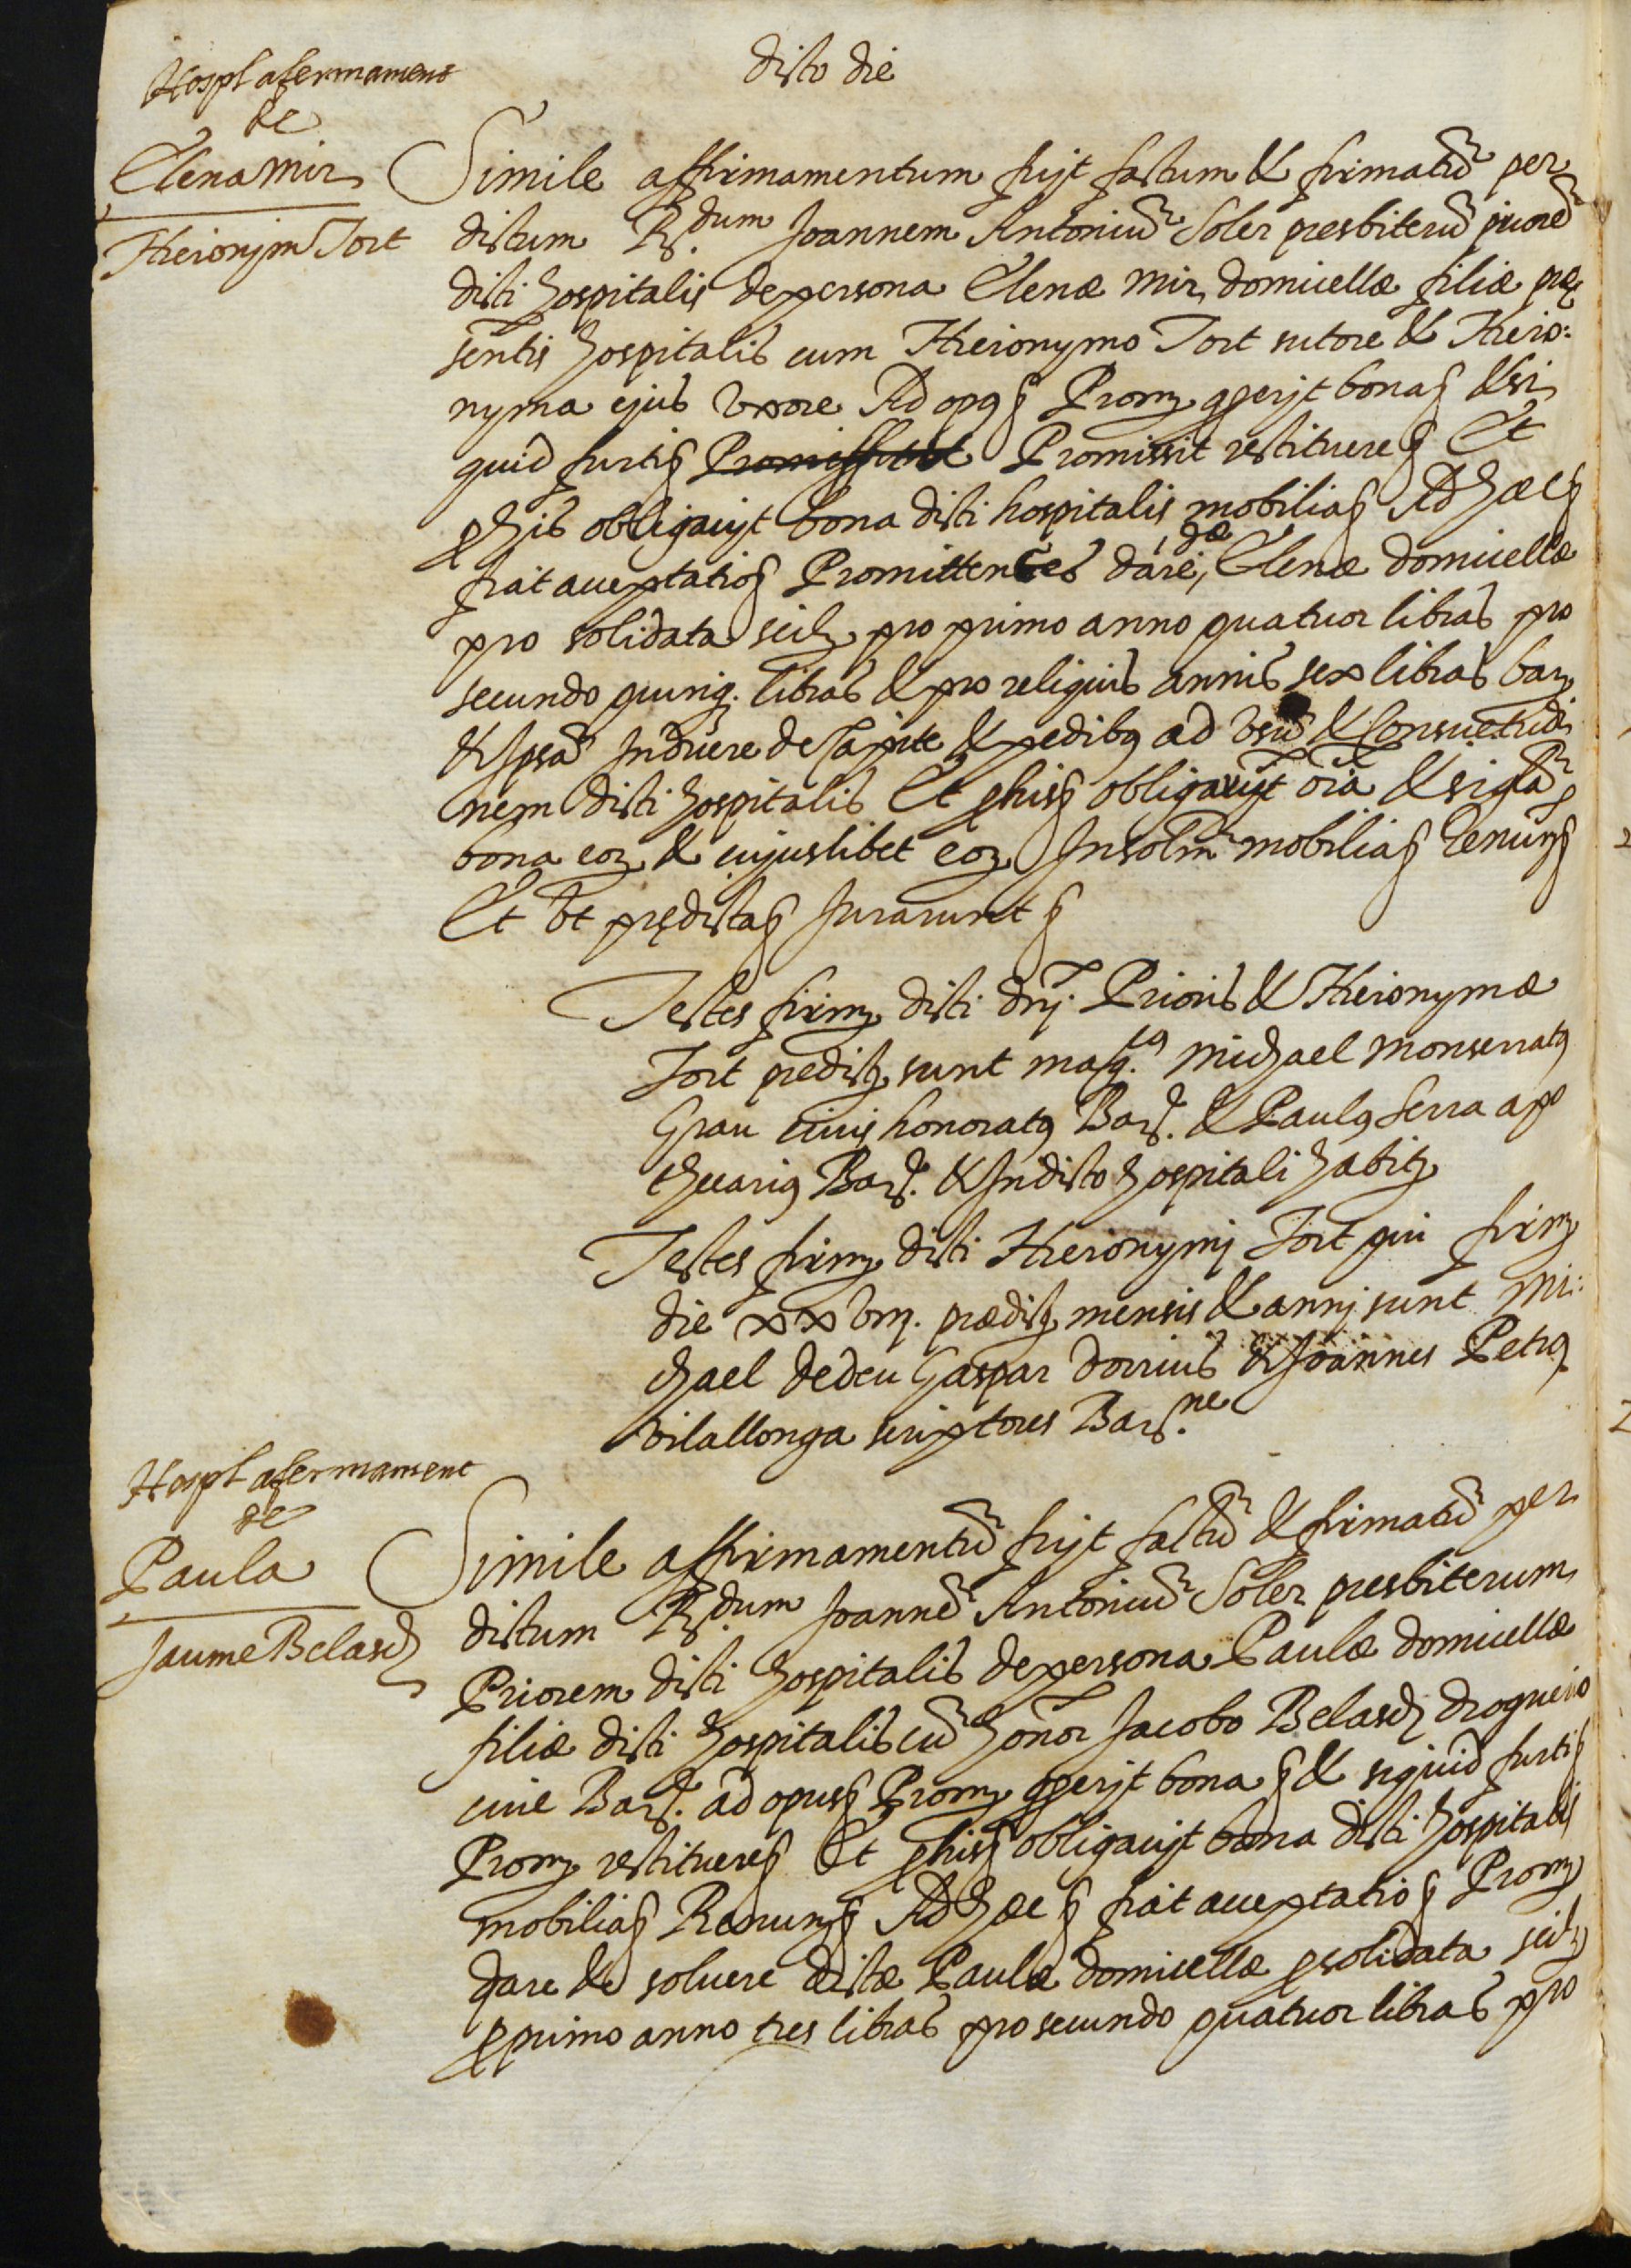 dicto die
Hospl afermament
de
Elena Mir
Hieronjm Tort
Simile affirmamentum fuit factum & firmatũ per
dictum R.dum Joannem Antoniũ Soler presbiterũ priorẽ
dicti hospitalis de persona Elenæ Mir domicellæ filiæ præ
sentis hospitalis cum Hieronymo Tort sutore & Hiero:
nyma ejus vxore Ad opus Prom gerijt bona & si
quid furti Promissit restituere Et
p his obligauit bona dicti hospitalis mobilia Ad hæc
fiat acceptatio Promittentes dare dæ Elenæ domicellæ
pro solidata scilz pro primo anno quatuor libras pro
secundo quinq. libras & pro reliquis annis sex libras bar
& ipsã Induere de Capite & pedibus ad vsũ & Consuetudi
nem dicti hospitalis Et p his obligauit oĩa & sigla
bona eorz & cujuslibet eorz Insolm mobilia Renun
Et vt prędicta Jurarunt
Testes firmę dicti dnj. Prioris & Hieronymæ
Tort predictę sunt mag.cus Michael Monserratus
Grau ciuis honoratus Bar. & Paulus Serra apo
thecarius Bar. & In dicto hospitali habit
Testes firmę dicti Hieronymj Tort qui firm
die xxvm. prædict mensis & annj sunt Mi:
chael dedeu Gaspar dorrius & Joannes Petrus
Vilallonga scriptores Bar.ne
Hospl afermament
de
Paula
Jaume Belasch
Simile affirmamentũ fuit factũ & firmatũ per
dictum R.dum Joannẽ Antoniũ Soler presbiterum
Priorem dicti hospitalis de persona Paulæ domicellæ
filiæ dicti hospitalis cũ honor Jacobo Belasch droguerio
ciue Bar. ad opus Prom gerijt bona & siquid furti
Prom restituere Et p his obligauit bona dicti hospitalis
mobilia Renun Ad hæc fiat acceptatio Prom
dare & soluere dictæ Paulæ domicellæ p solidata scilz
p primo anno tres libras pro secundo quatuor libras pro